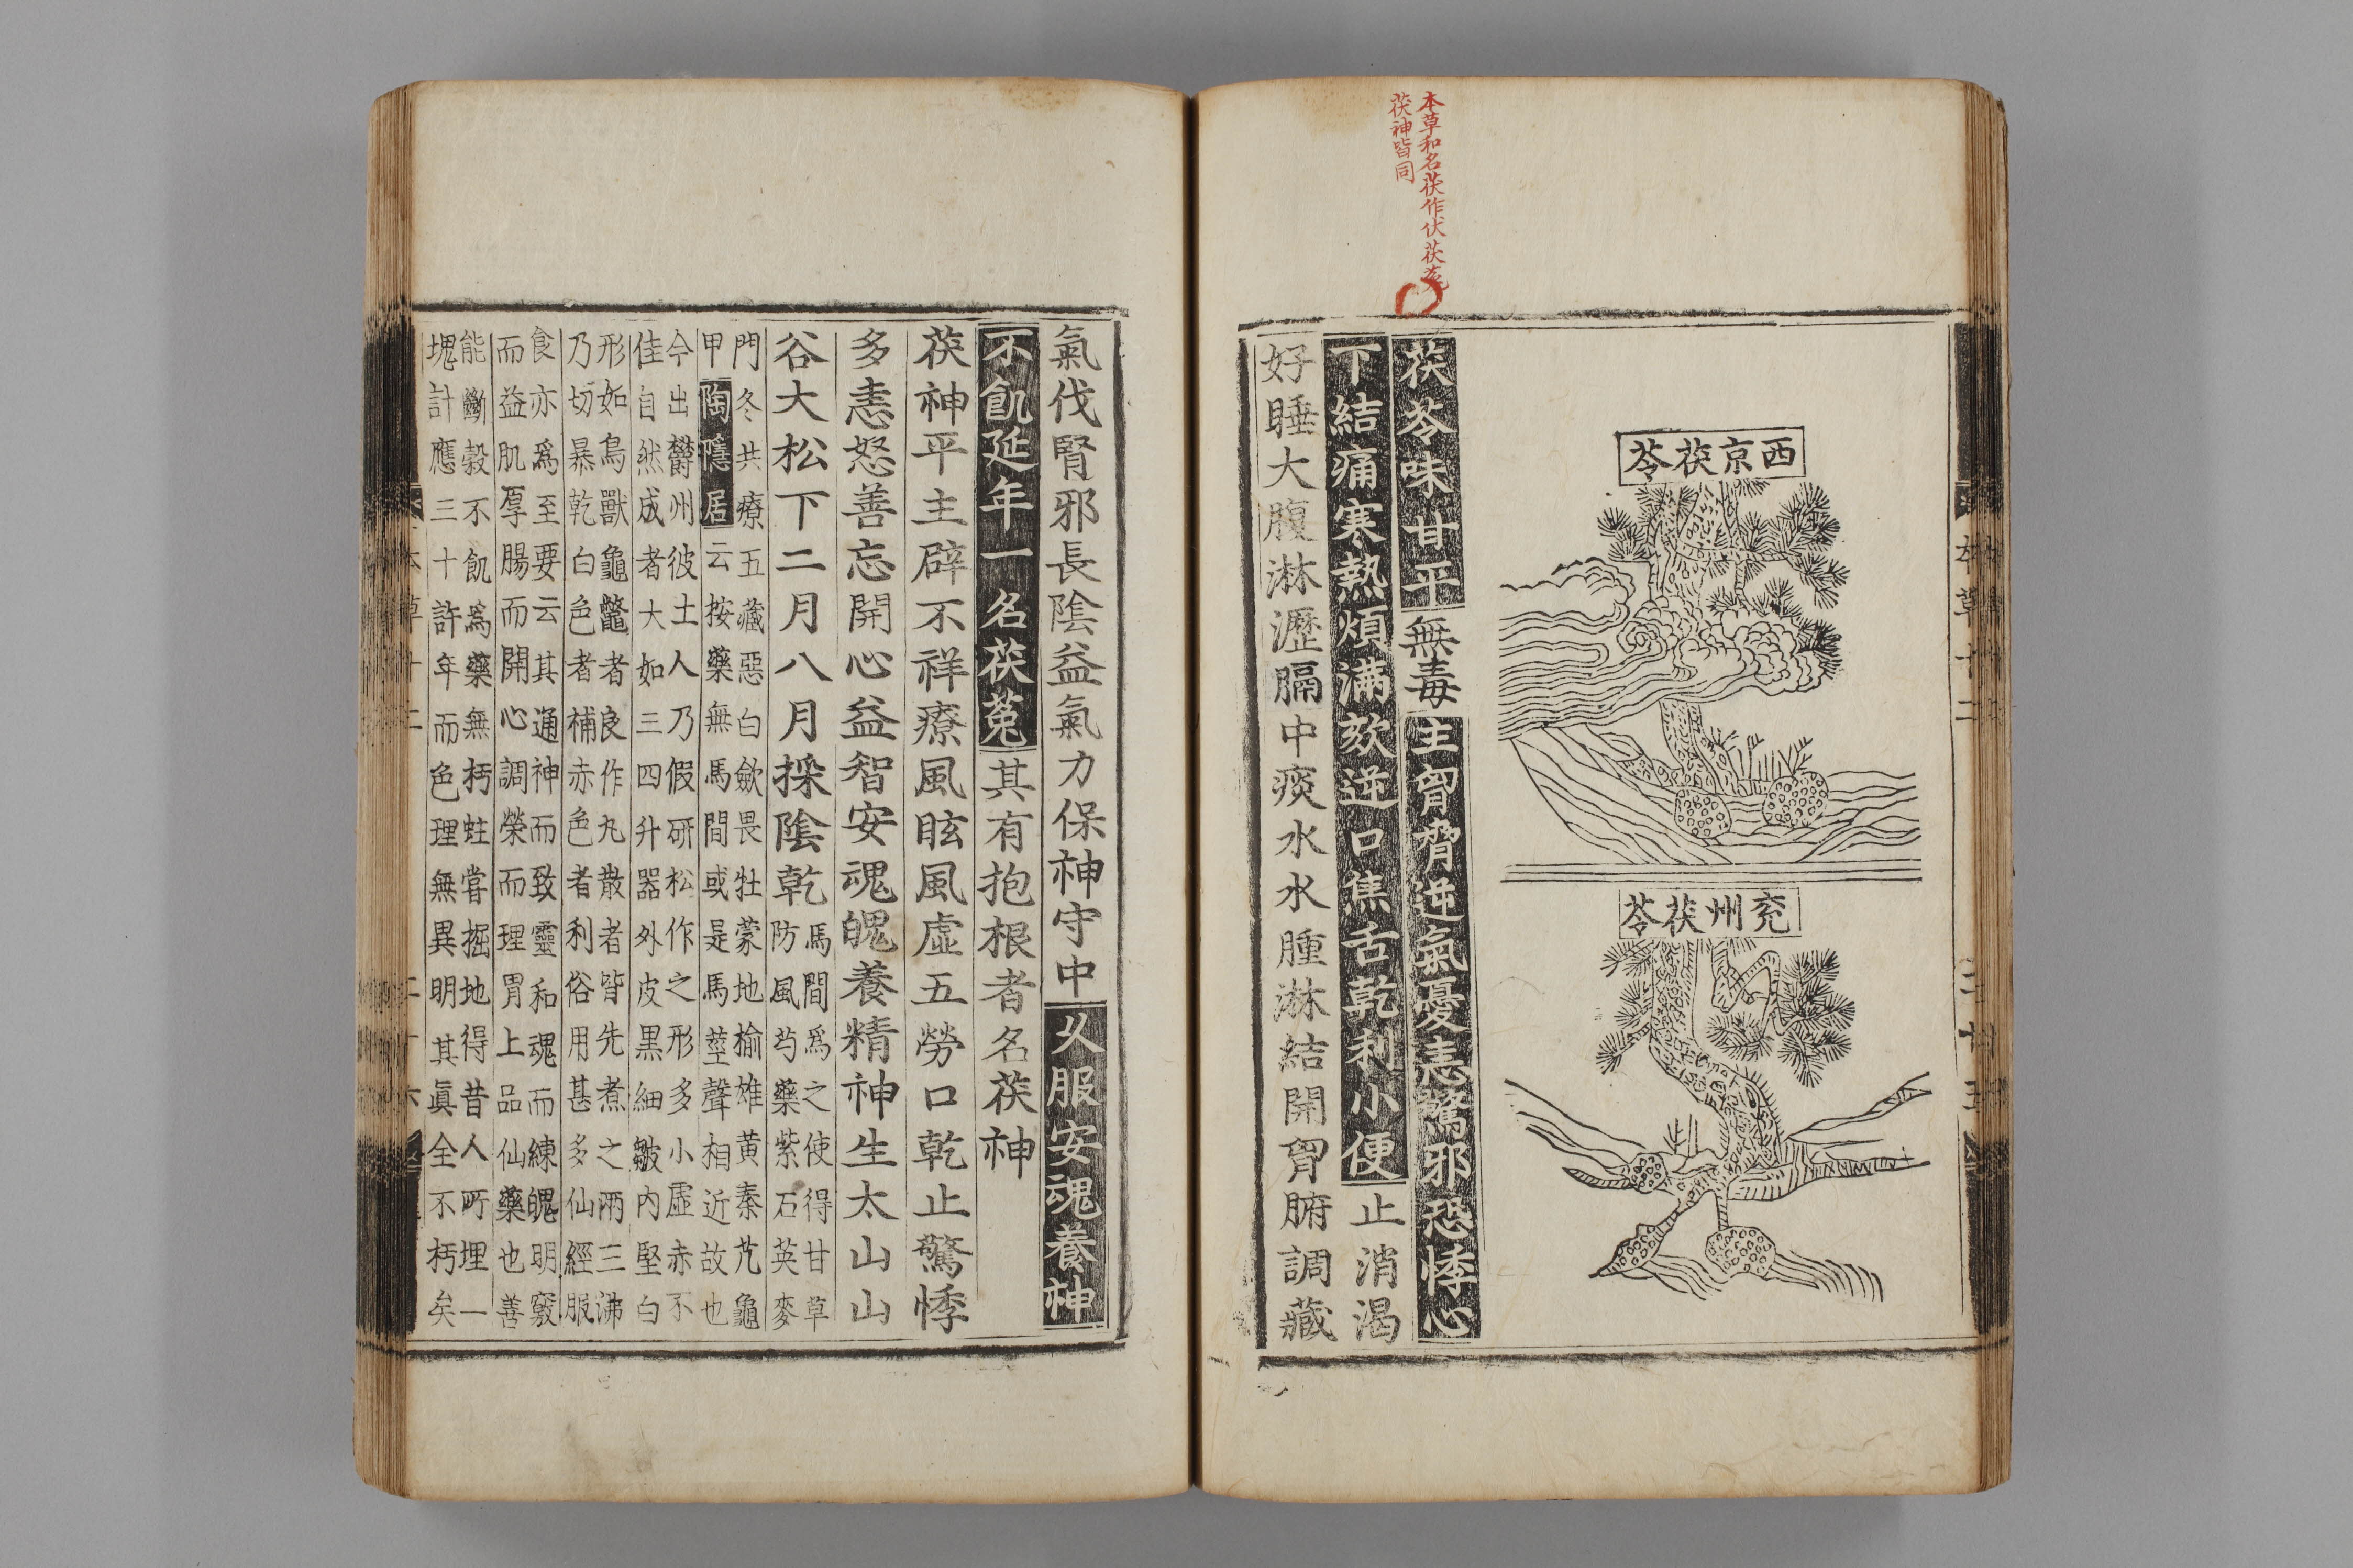 本草和名茯作伏茯莵
茯神皆同
西京茯苓
兖州茯苓
茯苓味甘平無毒主胷脅逆氣憂恚驚邪恐悸心
下結痛寒熱煩滿欬逆口焦舌乾利小便止消渴
好睡大腹淋瀝膈中痰水水腫淋結開胷腑調藏
氣伐腎邪長陰益氣力保神守中乆服安魂養神
不飢延年一名茯菟其有抱根者名茯神
茯神平主辟不祥療風眩風虛五勞口乾止驚悸
多恚怒善忘開心益智安魂魄養精神生太山山
谷大松下二月八月採陰乾馬間爲之使得甘草
防風芍藥紫石英麥
門冬共療五藏惡白歛畏牡蒙地榆雄黄秦艽龜
甲陶隱居云按藥無馬間或是馬莖聲相近故也
今出欝州彼土人乃假研松作之形多小虛赤不
佳自然成者大如三四升器外皮黒細皺内堅白
形如鳥獸龜鼈者良作丸散者皆先煮之兩三沸
乃切暴乾白色者補赤色者利俗用甚多仙經服
食亦爲至要云其通神而致靈和魂而練魄明竅
而益肌厚腸而開心調榮而理胃上品仙藥也善
能斷穀不飢爲藥無朽蛀嘗掘地得昔人所埋一
塊計應三十許年而色理無異明其眞全不朽矣